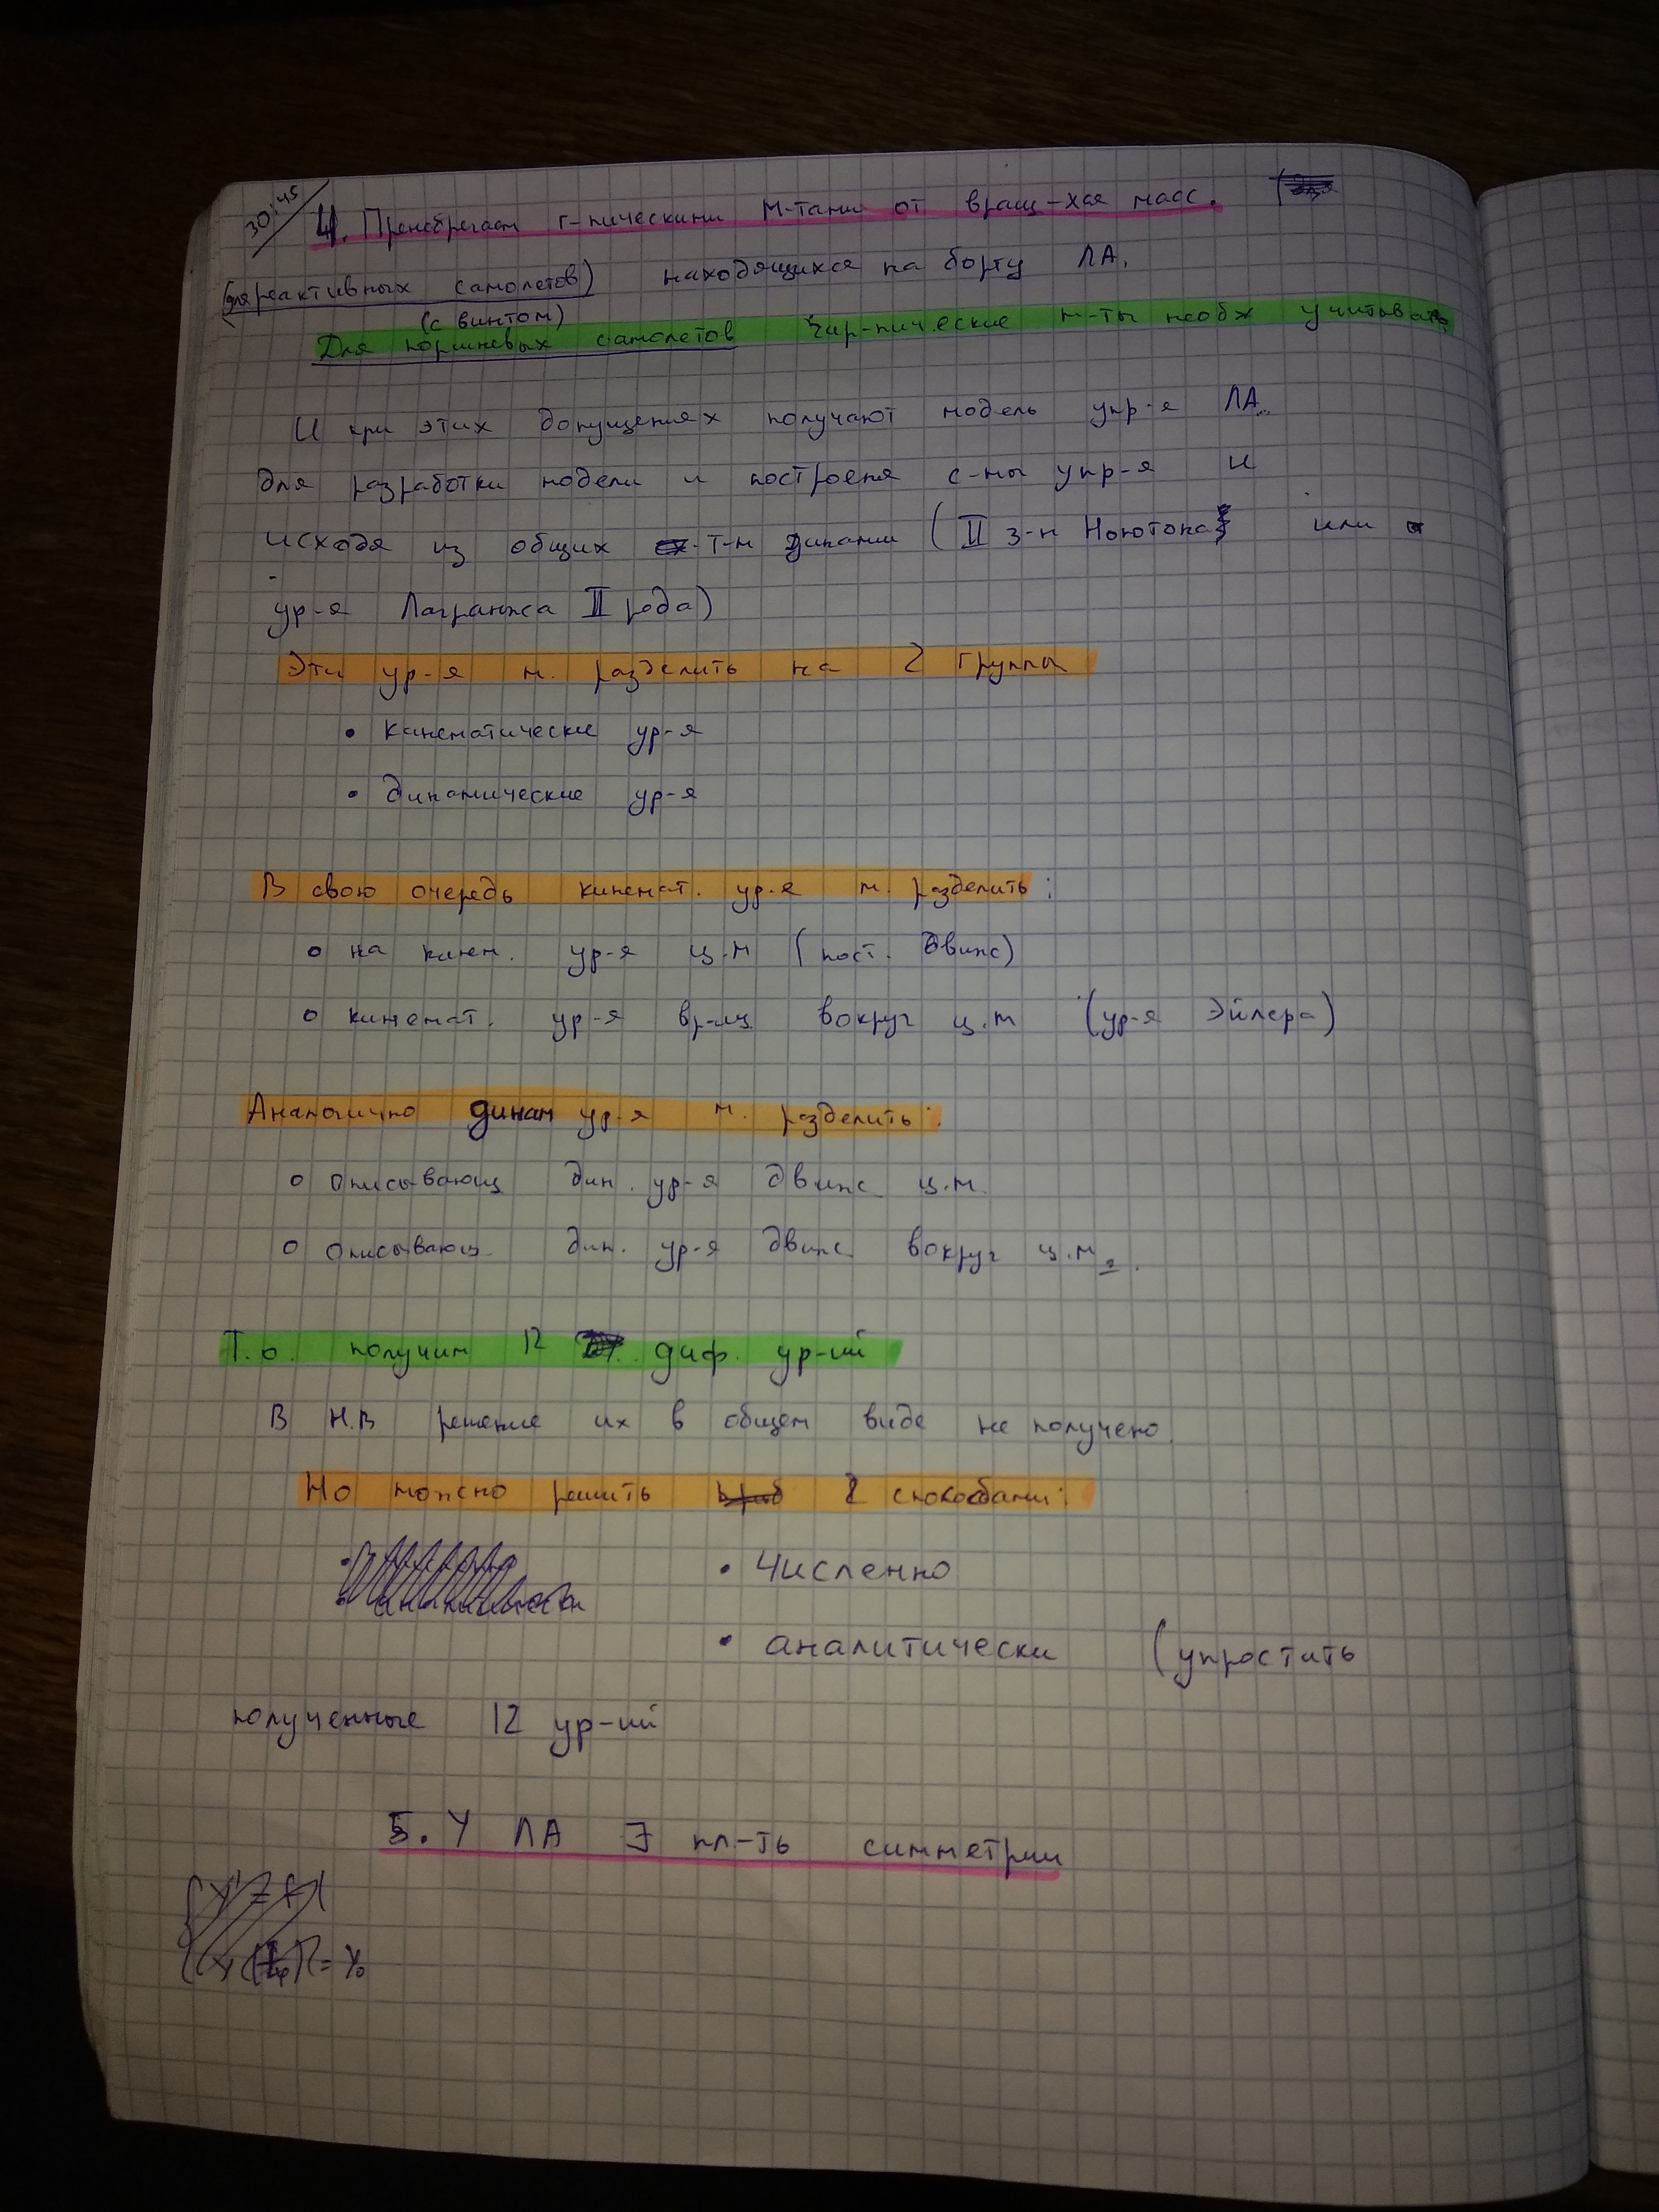 30:45
4. Пренебрегаем г-пическими м-тами от вращ-хся масс.
(для реактивных самолетов) находящихся на борту ЛА.
(с винтом)
Для поршневых самолетов гир-пические м-ты необх учитывать
И при этих допущениях получают модель упр-я ЛА
для разработки модели и построеня с-мы упр-я и
исходя из общих т-м динами (II з-н Ноютона или
ур-я Лагранжа II рода)
Эти ур-я м. разделить на 2 группы
• Кинематические ур-я
• динамические ур-я
В свою очередь кинемат. ур-я м. разделить:
о на кинем. ур-я ц.м (пост. движ)
о кинемат. ур-я вр-щ вокруг ц.м (ур-я Эйлера)
Аналогично динам ур-я м. разделить:
о описывающ дин. ур-я движ ц.м.
о описывающ. дин. ур-я движ вокруг ц.м.
Т.о. получим 12 диф. ур-ий
В Н.В решение их в общем виде не получено.
Но можно решить 2 способами:
• Численно
• аналитически (упростить
полученные 12 ур-ий
5. У ЛА ∃ пл-ть симметрии